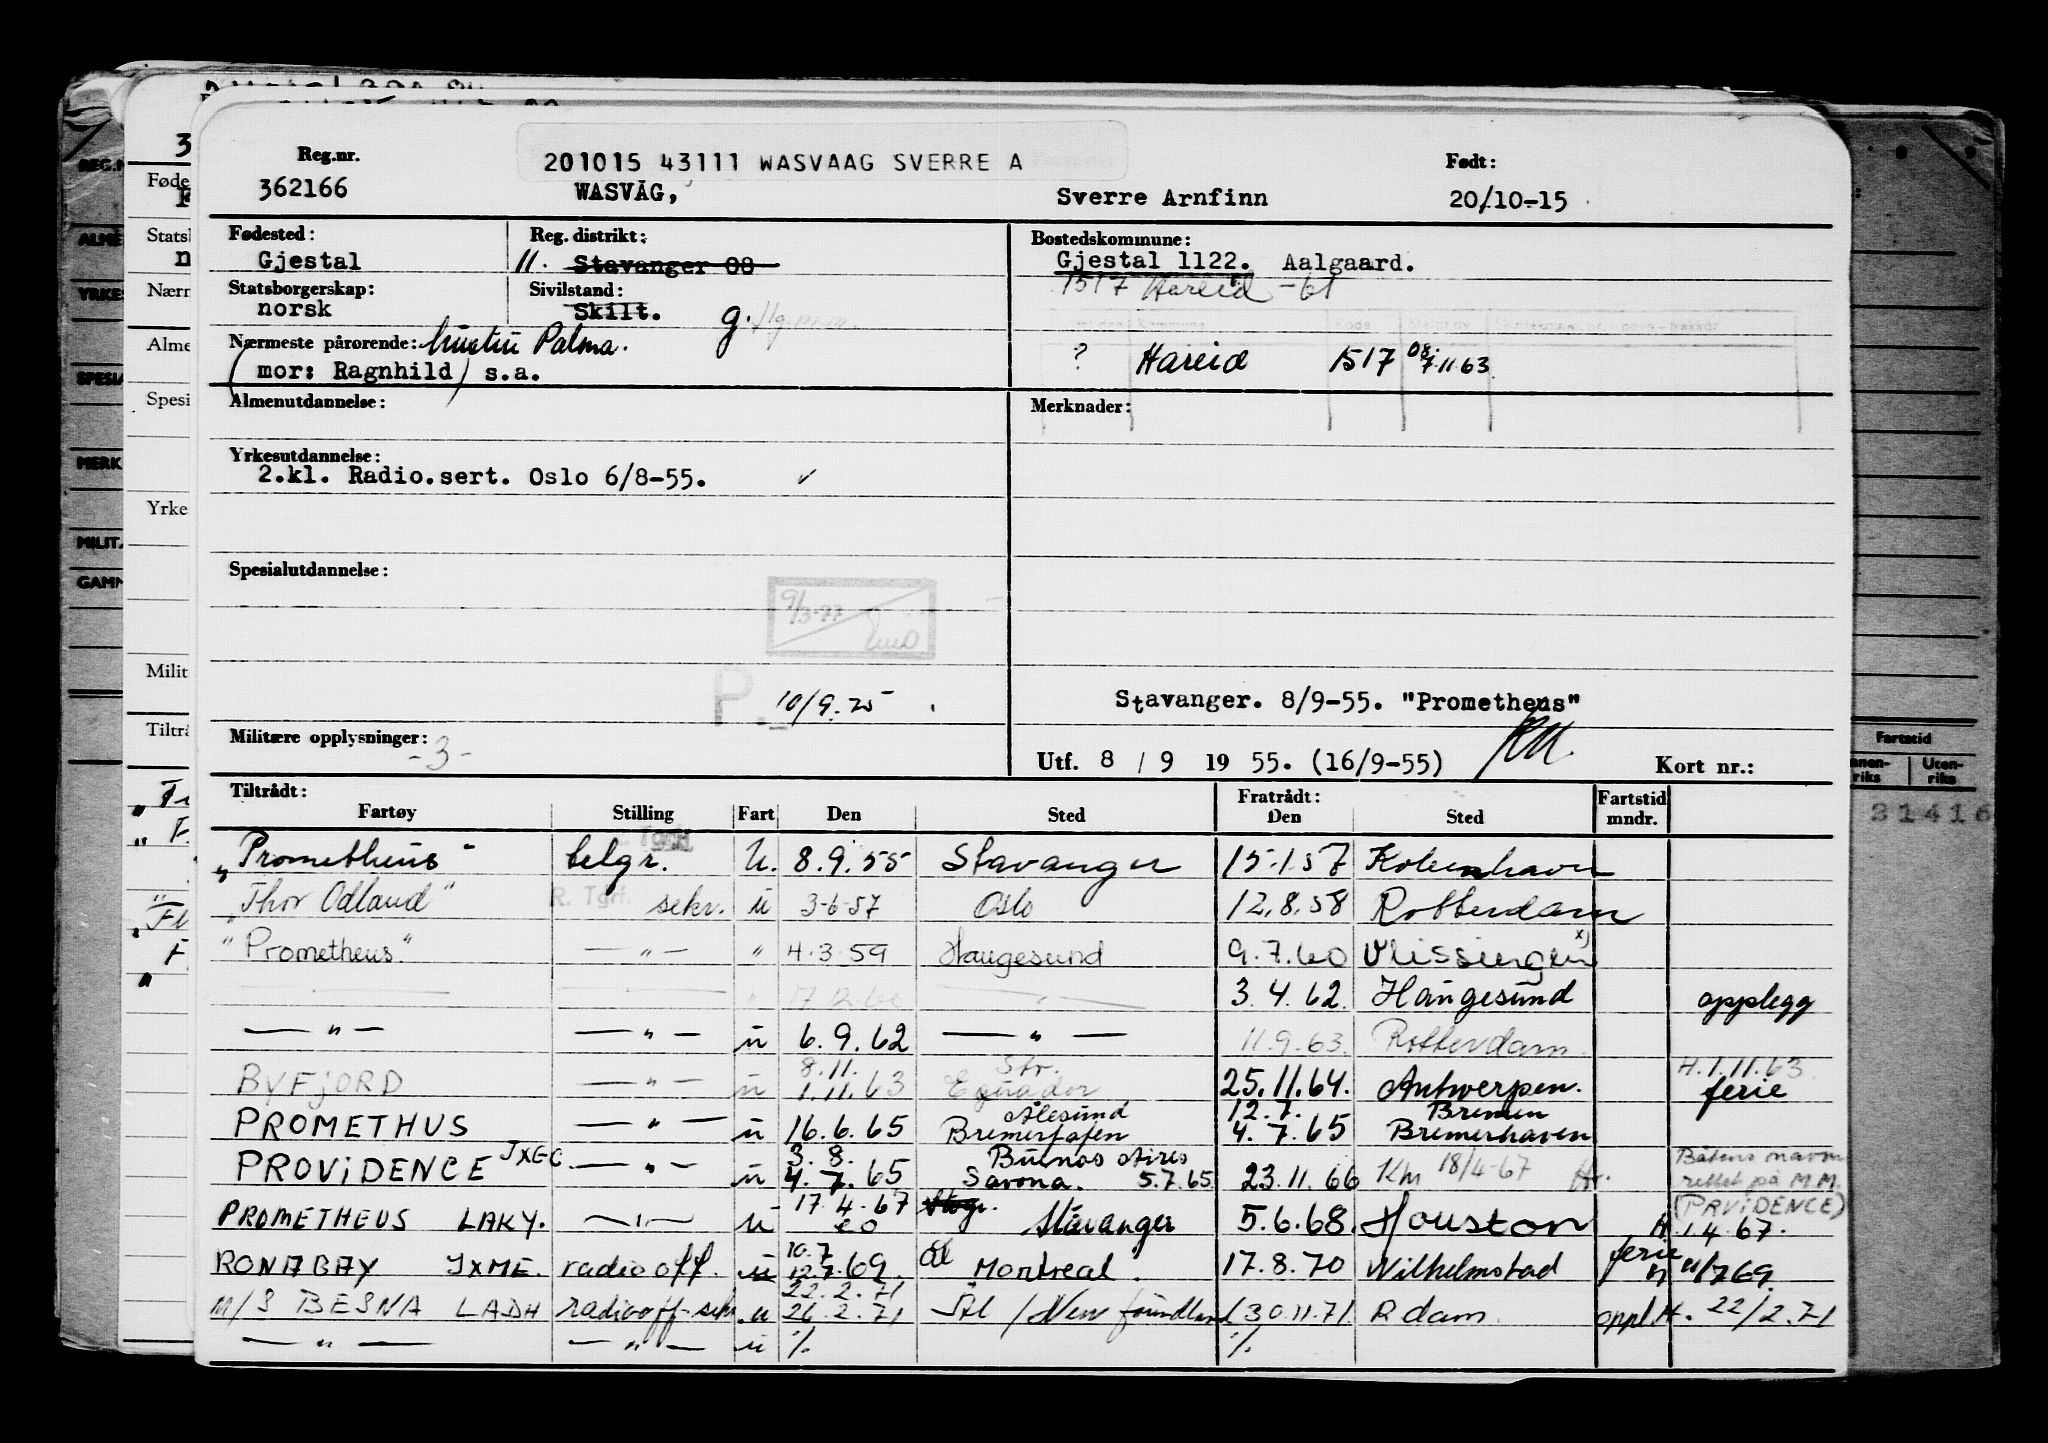 Reg.nr. 201015 43111 WASVAAG SVERRE A Født:
362166 WASVÅG, Sverre Arnfinn 20/10-15
Fødested: Reg. distrikt: Bostedskommune:
Gjestal 11. Stavanger 08 Gjestal 1122. Aalgaard.
Statsborgerskap: Sivilstand: 1517 Hareid -61
norsk Skilt. g.
Nærmeste pårørende: hustru Palma. ? Hareid 1517 08. 7.11.63
(mor: Ragnhild) s.a.
Almenutdannelse: Merknader:
Yrkesutdannelse:
2.kl. Radio.sert. Oslo 6/8-55.
Spesialutdannelse:
9/3-77
P. 10/9.75 Stavanger. 8/9-55. "Prometheus"
Militære opplysninger: -3- Utf. 8 / 9 19 55. (16/9-55) Kort nr.:
Tiltrådt: Fratrådt: Fartstid
Fartøy Stilling Fart Den Sted Den Sted mndr.
"Prometheus" telgr. U. 8.9.55 Stavanger 15.1.57 København
"Thor Odland" R. Tgr. sekr. u 3-6-57 Oslo 12.8.58 Rotterdam
"Prometheus" — " — " 4.3.59 Haugesund 9.7.60 Vlissingen x)
— " — " 17.12.60 — " — 3.4.62. Haugesund opplegg
— " — — " — u 6.9.62 — " — 11.9.63. Rotterdam.
8.11. Str. H.1.11.63
BYFJORD — " — u 1.11.63 Equador 25.11.64. Antwerpen. ferie
Ålesund 12.7. Bremen
PROMETHUS — " — u 16.6.65 Bremerhafen 4.7.65 Bremerhaven
3.8. Buenos Aires Båtens navn
PROVIDENCE JXGC — " — u 4.7.65 Savona. 5.7.65 23.11.66 Khn 18/4-67 rettet på M.M.
17.4.67 (PRVIDENCE)
PROMETHEUS LAKY. — " — u Stavanger 5.6.68. Houston H.1.4.67.
10.7 ferie
RONABAY JXME. radio off. u 12.7.69. Montreal. 17.8.70 Wilhelmstad 769.
22.2.71
M/S BESNA LADH radiooff-sekr. u 26.2.71 Stl / New foundland 30.11.71. Rdam. oppl. H. 22/2.71
— " — — " — u % %
REG.N
ALME
YRKES
SPESIA
MERK
MILIT.
GAMM
3
Føde
Statsb
Nærn
Alme
Spesi
Yrke
Milit
Tiltrå
Fartstid
Innen-riks Uten-riks
31416